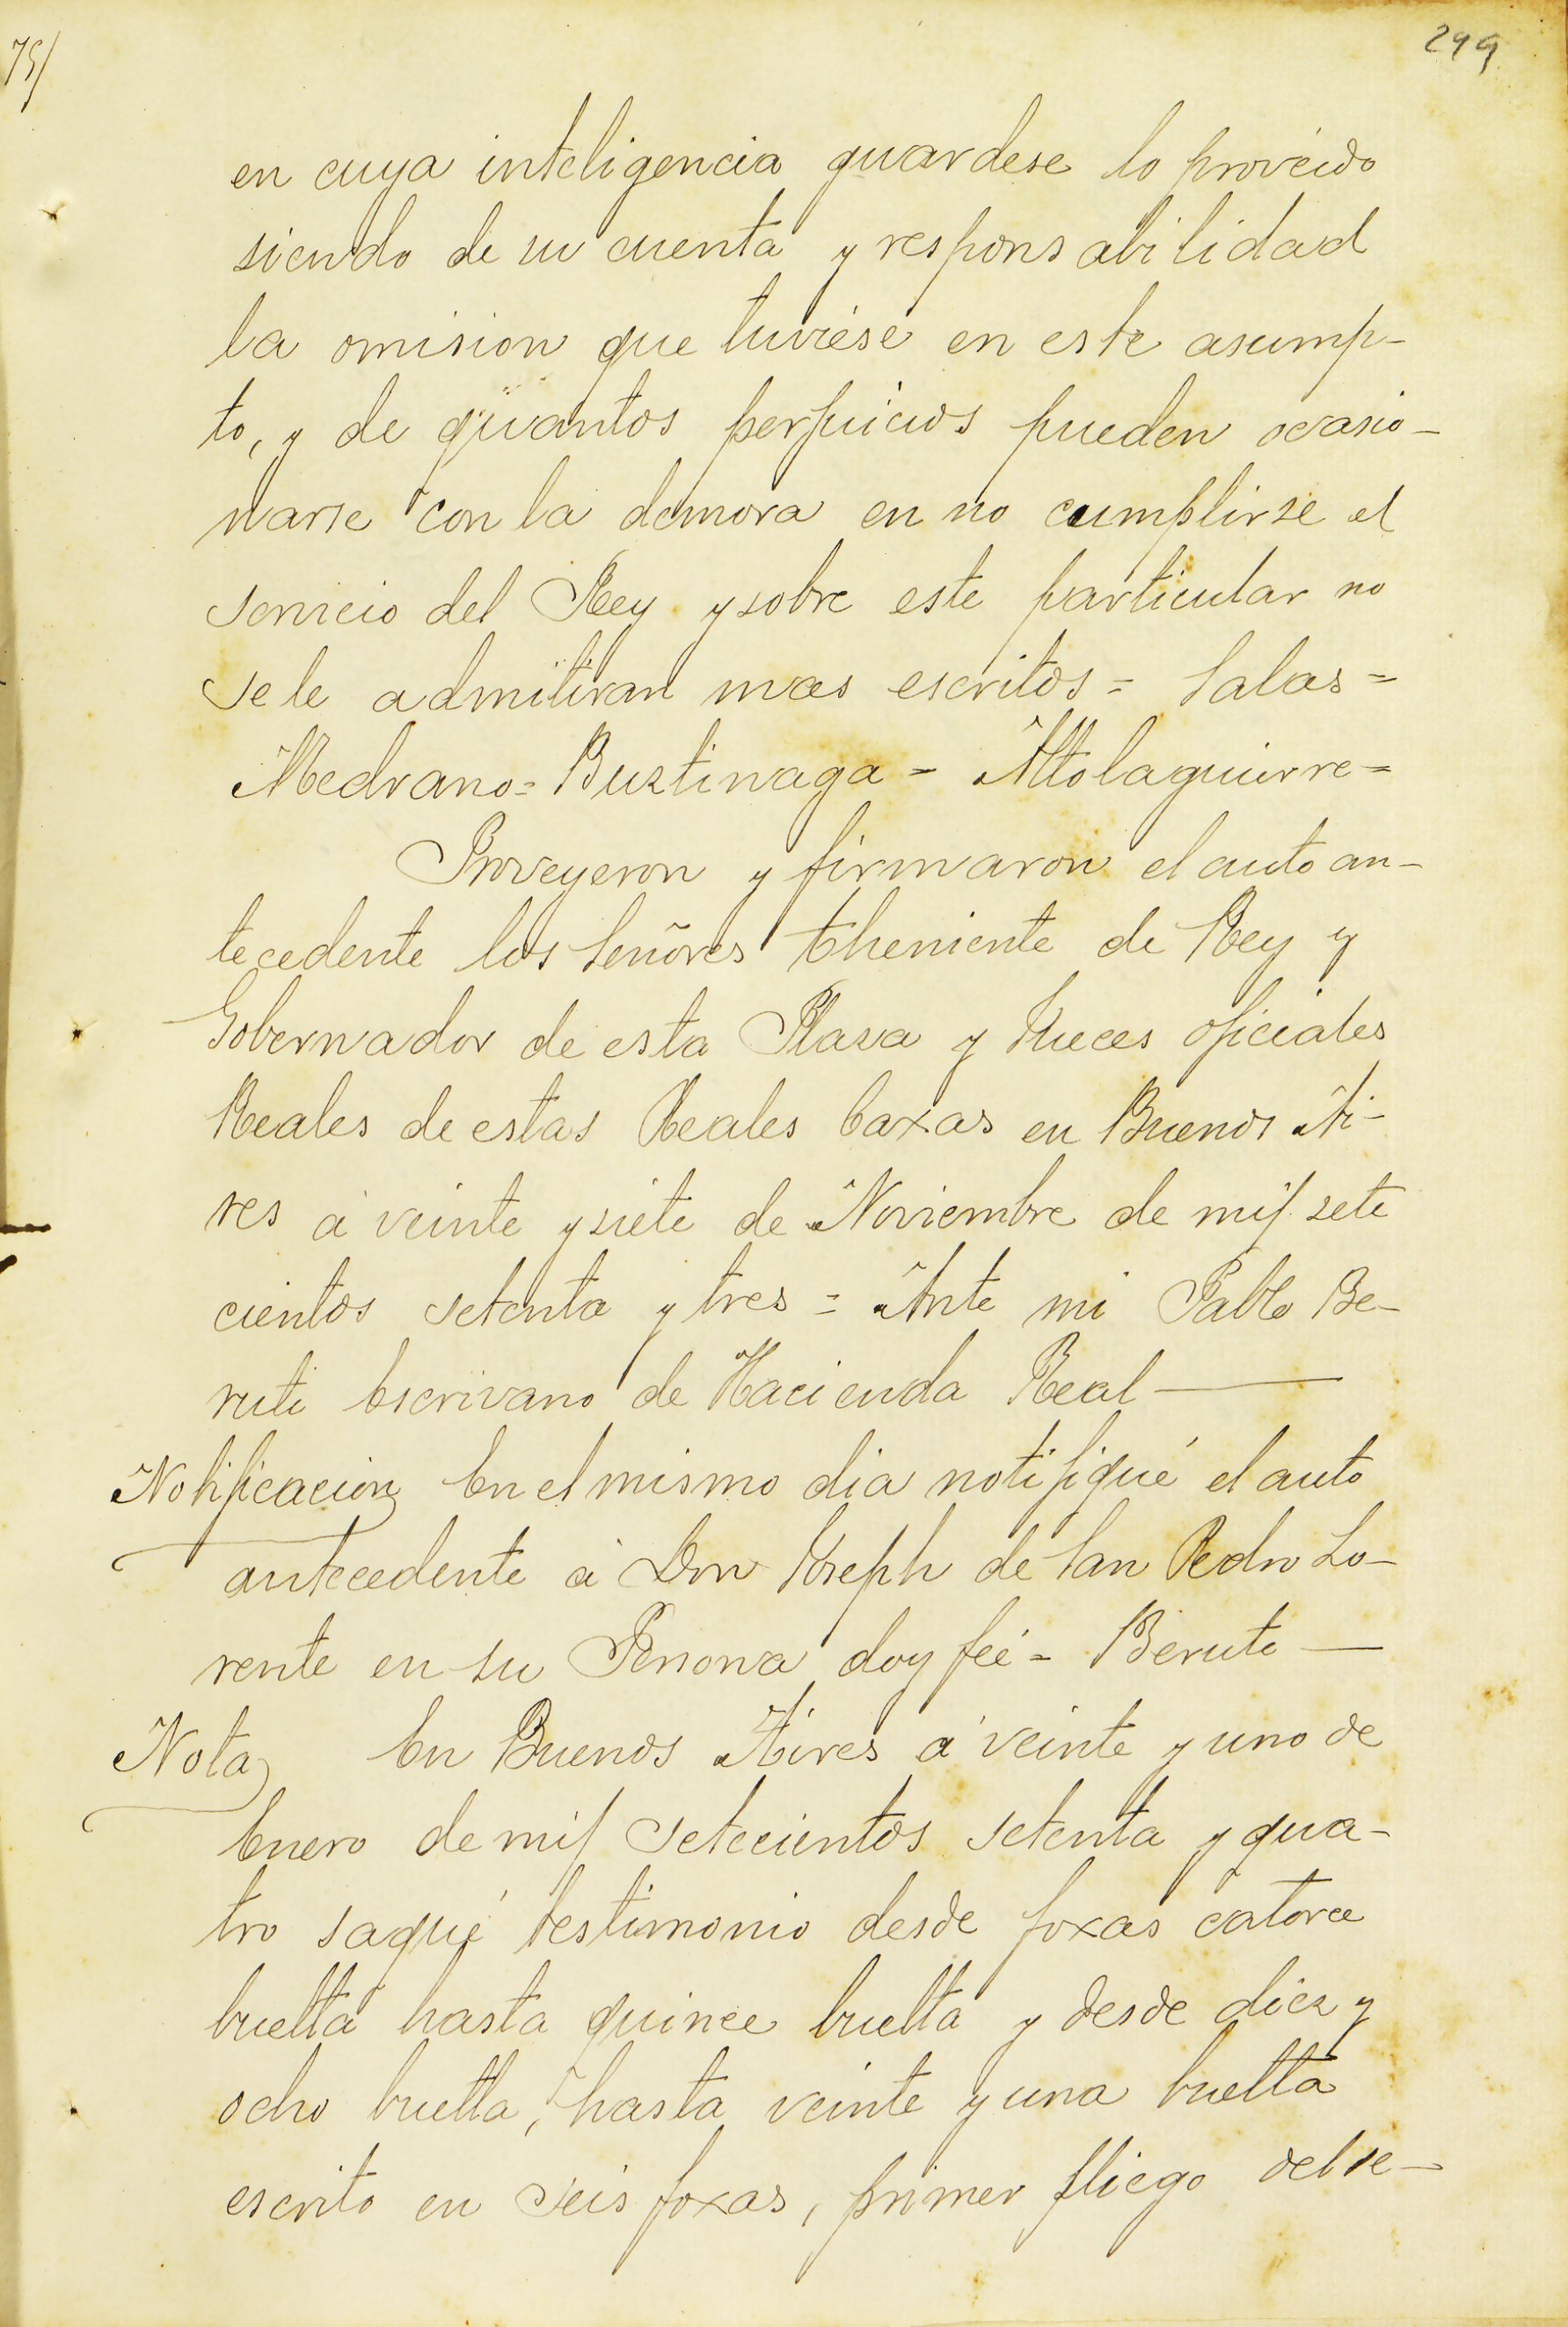 75/
299
en cuya inteligencia guardese lo proveido
siendo de su cuenta y responsabilidad
la omision que tuviese en este asump-
to, y de quantos perjuicios pueden ocasio-
narse con la demora en no cumplirse el
servicio del Rey y sobre este particular no
se le admitiran mas escritos = Salas =
Medrano = Bustinaga = Altolaguirre =
Proveyeron y firmaron el auto an-
tecedente los Señores Theniente de Rey y
Gobernador de esta Plaza y Jueces oficiales
Reales de estas Reales Caxas en Buenos Ai-
res á veinte y siete de Noviembre de mil sete
cientos setenta y tres = Ante mi Pablo Be-
ruti Escrivano de Hacienda Real —
Notificacion En el mismo dia notifiqué el auto
antecedente á Don Joseph de San Pedro Lo-
rente en su Persona doy feé = Berute —
Nota En Buenos Aires á veinte y uno de
Enero de mil setecientos setenta y qua-
tro saqué testimonio desde foxas catorce
buelta hasta quince buelta y desde diez y
ocho buelta, hasta veinte y una buelta
escrito en seis foxas, primer pliego del se-